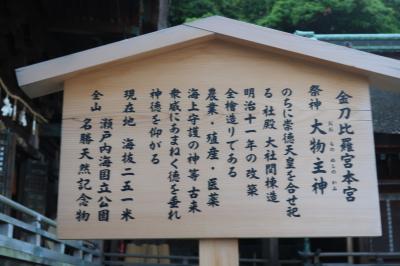 金刀比羅宮本宮
祭神 大物主神
おお もの ぬしの かみ
のちに崇徳天皇を合せ祀
る 社殿 大社関棟造
明治十一年の改築
全檜造りである
農業・殖産・医薬
海上守護の神等 古来
衆庶にあまねく徳を垂れ
神徳を仰がる
現在地 海抜二五一米
瀬戸内海国立公園
全山 名勝天然記念物